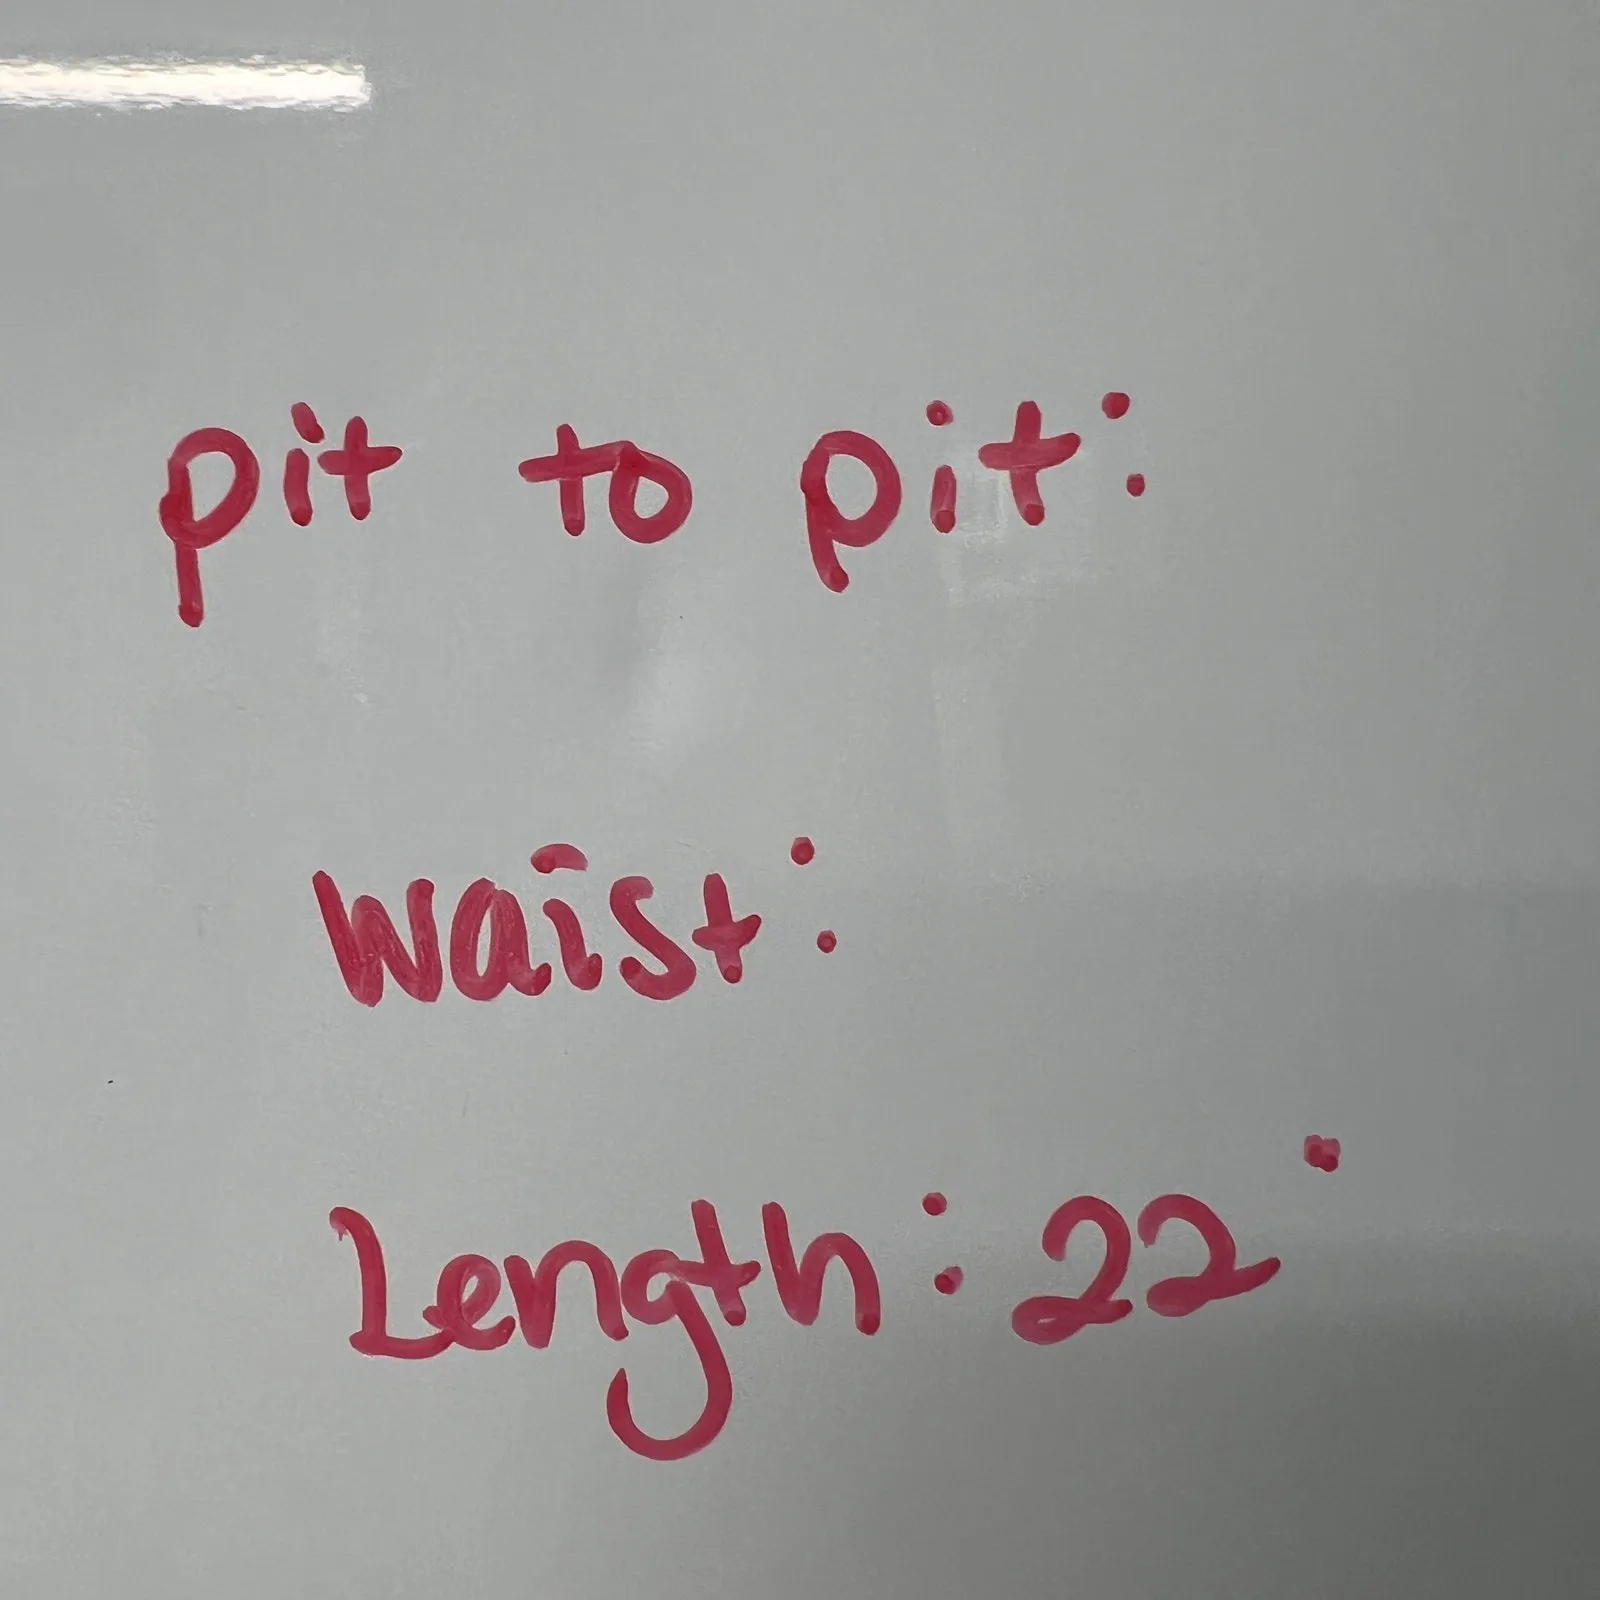 pit to pit:
Waist:
Length: 22"